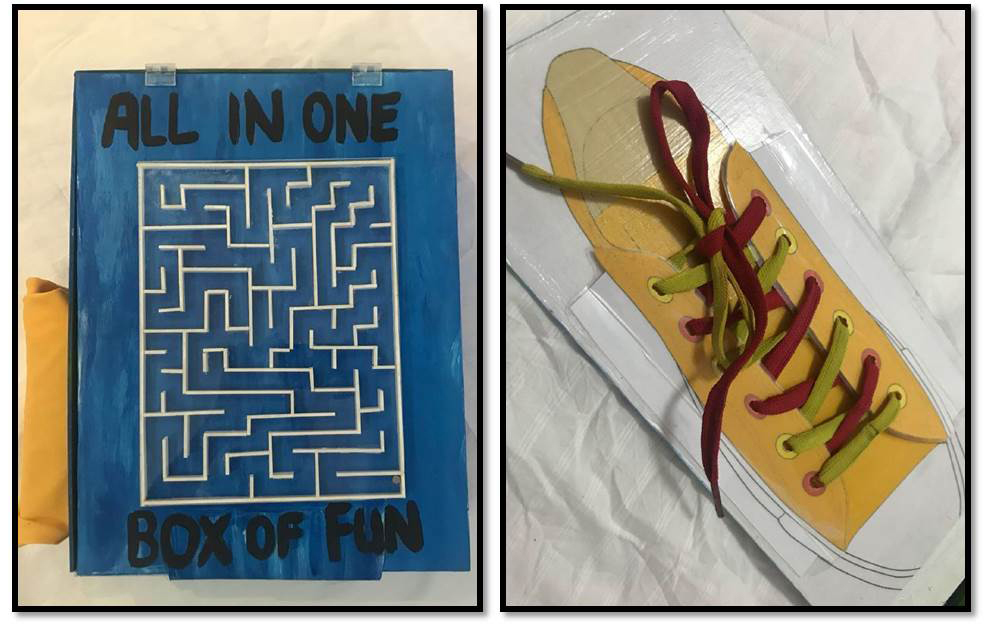 ALL IN ONE
BOX OF FUN